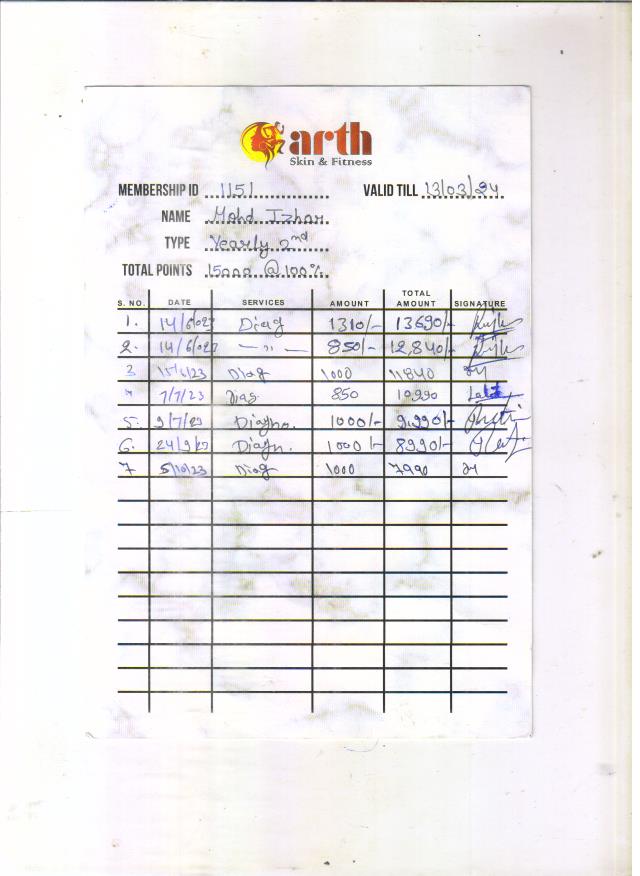 arth
Skin & Fitness
MEMBERSHIP ID 1151 VALID TILL 13/03/24
NAME Mohd Izhar
TYPE Yearly 2nd
TOTAL POINTS 15000 @ 100%
S. NO. DATE SERVICES AMOUNT TOTAL AMOUNT SIGNATURE
1. 14/6/023 Diag 1310/- 13690/-
2. 14/6/023 — " — 850/- 12,840/-
3 15/6/23 Diag 1000 11840
4 7/7/23 Diag 850 10990
5. 9/7/23 Diagno. 1000/- 9,990/-
6. 24/9/23 Diagn. 1000/- 8990/-
7 5/10/23 Diag 1000 7990